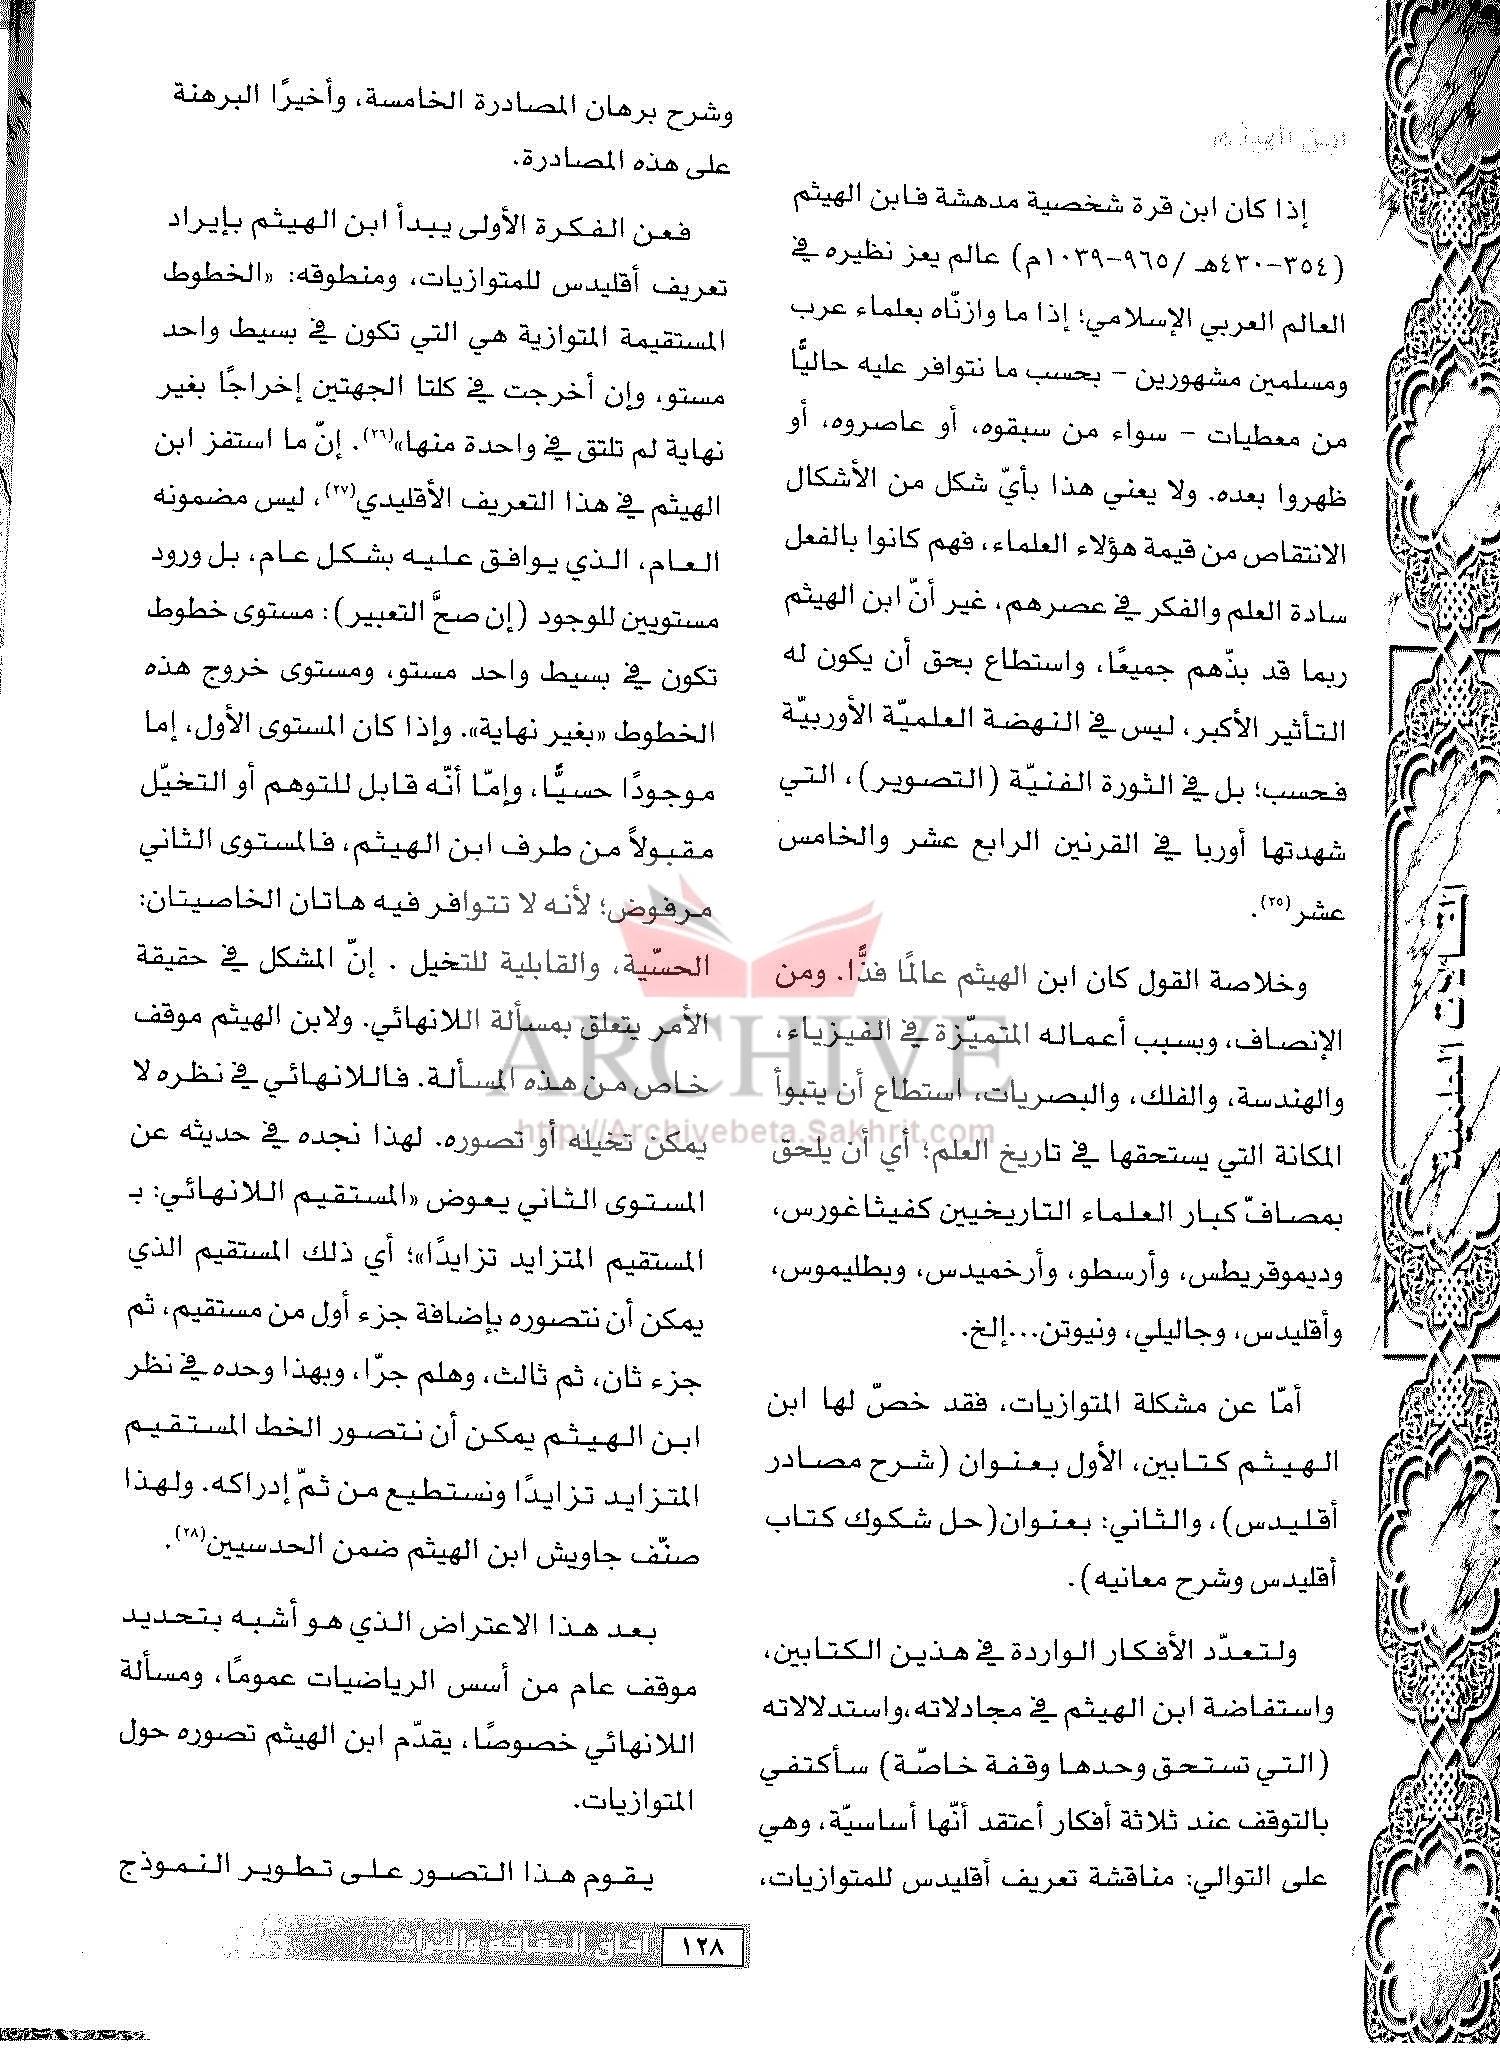 ابن الهيثم
إذا كان ابن قرة شخصية مدهشة فابن الهيثم
(٣٥٤-٤٣٠هـ /٩٦٥-١٠٣٩م) عالم يعز نظيره في
العالم العربي الإسلامي؛ إذا ما وازنّاه بعلماء عرب
ومسلمين مشهورين - بحسب ما نتوافر عليه حاليًّا
من معطيات - سواء من سبقوه، أو عاصروه، أو
ظهروا بعده. ولا يعني هذا بأيّ شكل من الأشكال
الانتقاص من قيمة هؤلاء العلماء، فهم كانوا بالفعل
سادة العلم والفكر في عصرهم، غير أنّ ابن الهيثم
ربما قد بذّهم جميعًا، واستطاع بحق أن يكون له
التأثير الأكبر، ليس في النهضة العلميّة الأوربيّة
فحسب؛ بل في الثورة الفنيّة (التصوير)، التي
شهدتها أوربا في القرنين الرابع عشر والخامس
عشر(٢٥).
وخلاصة القول كان ابن الهيثم عالمًا فذًّا. ومن
الإنصاف، وبسبب أعماله المتميّزة في الفيزياء،
والهندسة، والفلك، والبصريات، استطاع أن يتبوأ
المكانة التي يستحقها في تاريخ العلم؛ أي أن يلحق
بمصافّ كبار العلماء التاريخيين كفيثاغورس،
وديموقريطس، وأرسطو، وأرخميدس، وبطليموس،
وأقليدس، وجاليلي، ونيوتن...إلخ.
أمّا عن مشكلة المتوازيات، فقد خصّ لها ابن
الهيثم كتابين، الأول بعنوان (شرح مصادر
أقليدس)، والثاني: بعنوان(حل شكوك كتاب
أقليدس وشرح معانيه).
ولتعدّد الأفكار الواردة في هذين الكتابين،
واستفاضة ابن الهيثم في مجادلاته،واستدلالاته
(التي تستحق وحدها وقفة خاصّة) سأكتفي
بالتوقف عند ثلاثة أفكار أعتقد أنّها أساسيّة، وهي
على التوالي: مناقشة تعريف أقليدس للمتوازيات،
وشرح برهان المصادرة الخامسة، وأخيرًا البرهنة
على هذه المصادرة.
فعن الفكرة الأولى يبدأ ابن الهيثم بإيراد
تعريف أقليدس للمتوازيات، ومنطوقه: «الخطوط
المستقيمة المتوازية هي التي تكون في بسيط واحد
مستو، وإن أخرجت في كلتا الجهتين إخراجًا بغير
نهاية لم تلتق في واحدة منها»(٢٦). إنّ ما استفز ابن
الهيثم في هذا التعريف الأقليدي(٢٧)، ليس مضمونه
العام، الذي يوافق عليه بشكل عام، بل ورود
مستويين للوجود (إن صحَّ التعبير): مستوى خطوط
تكون في بسيط واحد مستو، ومستوى خروج هذه
الخطوط «بغير نهاية». وإذا كان المستوى الأول، إما
موجودًا حسيًّا، وإمّا أنّه قابل للتوهم أو التخيّل
مقبولاً من طرف ابن الهيثم، فالمستوى الثاني
مرفوض؛ لأنه لا تتوافر فيه هاتان الخاصيتان:
الحسّية، والقابلية للتخيل . إنّ المشكل في حقيقة
الأمر يتعلق بمسألة اللانهائي. ولابن الهيثم موقف
خاص من هذه المسألة. فاللانهائي في نظره لا
يمكن تخيله أو تصوره. لهذا نجده في حديثه عن
المستوى الثاني يعوض «المستقيم اللانهائي: بـ
المستقيم المتزايد تزايدًا»؛ أي ذلك المستقيم الذي
يمكن أن نتصوره بإضافة جزء أول من مستقيم، ثم
جزء ثان، ثم ثالث، وهلم جرّا، وبهذا وحده في نظر
ابن الهيثم يمكن أن نتصور الخط المستقيم
المتزايد تزايدًا ونستطيع من ثمّ إدراكه. ولهذا
صنّف جاويش ابن الهيثم ضمن الحدسيين(٢٨).
بعد هذا الاعتراض الذي هو أشبه بتحديد
موقف عام من أسس الرياضيات عمومًا، ومسألة
اللانهائي خصوصًا، يقدّم ابن الهيثم تصوره حول
المتوازيات.
يقوم هذا التصور على تطوير النموذج
ARCHIVE
http://Archivebeta.Sakhrit.com
١٢٨ آفاق الثقافة والتراث